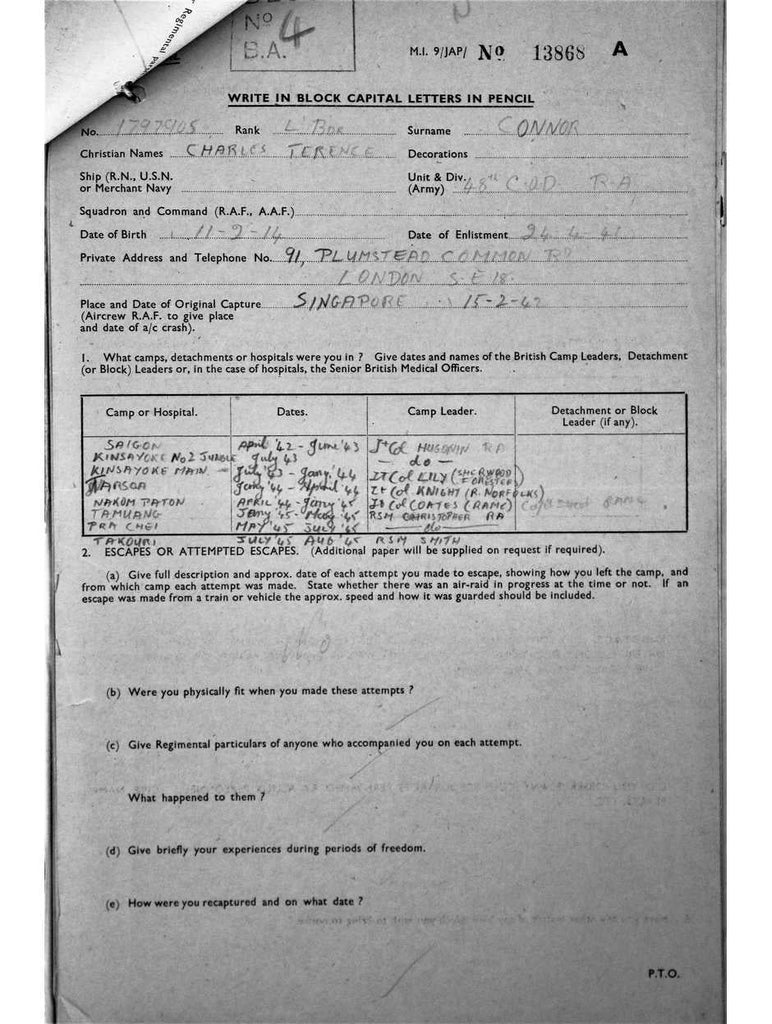 Regimental
No
B.A. 4
M.I. 9/JAP/ No 13868 A
WRITE IN BLOCK CAPITAL LETTERS IN PENCIL
No. 1797905 Rank L'BDR Surname CONNOR
Christian Names CHARLES TERENCE Decorations
Ship (R.N., U.S.N. or Merchant Navy Unit & Div. (Army) 48th C.O.D R.A.
Squadron and Command (R.A.F., A.A.F.)
Date of Birth 11-2-14 Date of Enlistment 24.4.41
Private Address and Telephone No. 91, PLUMSTEAD COMMON RD
LONDON S.E 18.
Place and Date of Original Capture SINGAPORE 15-2-42
(Aircrew R.A.F. to give place
and date of a/c crash).
1. What camps, detachments or hospitals were you in ? Give dates and names of the British Camp Leaders, Detachment
(or Block) Leaders or, in the case of hospitals, the Senior British Medical Officers.
Camp or Hospital. Dates. Camp Leader. Detachment or Block Leader (if any).
SAIGON April '42 - June '43 Lt Col HUGONIN RA
KINSAYOKE No 2 JUNGLE July 43 — do —
KINSAYOKE MAIN — July '43 - Jany '44 Lt Col LILY (SHERWOOD FORESTERS)
TARSOA Jany '44 - April '44 Lt Col KNIGHT (R. NORFOLKS)
NAKOM PATON APRIL '44 - Jany '45 Lt Col COATES (RAMC) RAMC
TAMUANG Jany '45 - May '45 RSM CHRISTOPHER RA
PRA CHEI MAY '45 July '45 — do —
TAKOURI JULY '45 AUG '45 RSM SMITH
2. ESCAPES OR ATTEMPTED ESCAPES. (Additional paper will be supplied on request if required).
(a) Give full description and approx. date of each attempt you made to escape, showing how you left the camp, and
from which camp each attempt was made. State whether there was an air-raid in progress at the time or not. If an
escape was made from a train or vehicle the approx. speed and how it was guarded should be included.
(b) Were you physically fit when you made these attempts ?
(c) Give Regimental particulars of anyone who accompanied you on each attempt.
What happened to them ?
(d) Give briefly your experiences during periods of freedom.
(e) How were you recaptured and on what date ?
P.T.O.